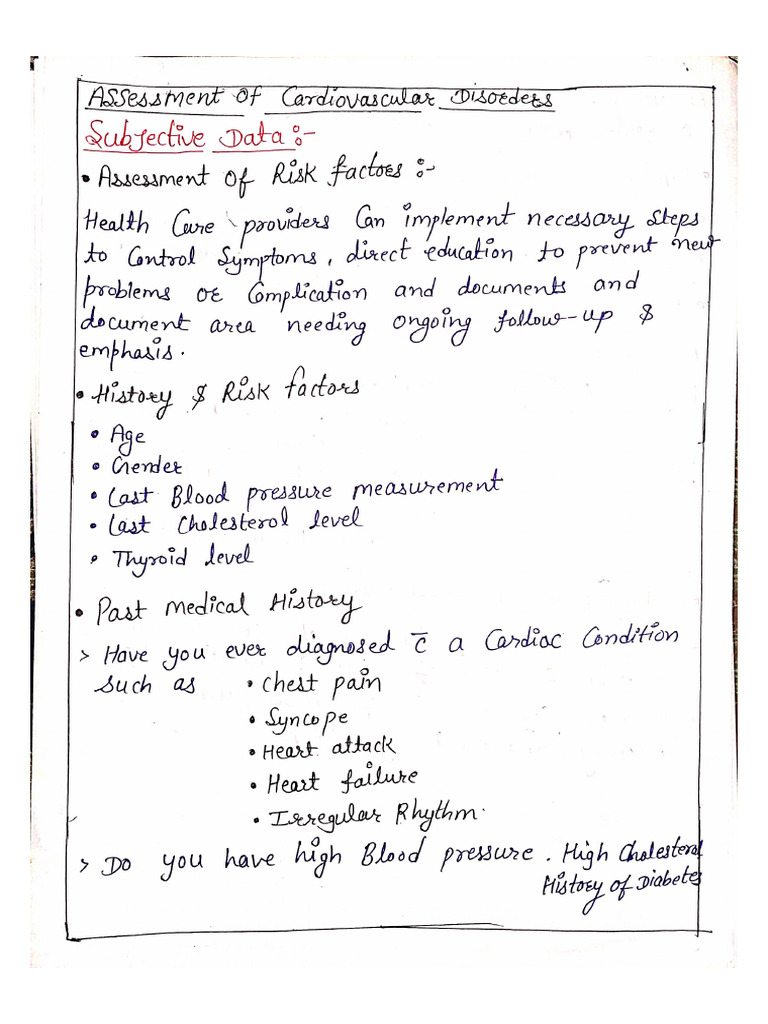 Assessment of Cardiovascular Disorders
Subjective Data:-
• Assessment of Risk factors :-
Health Care providers Can implement necessary steps
to Control Symptoms, direct education to prevent new
problems or Complication and documents and
document area needing ongoing follow-up &
emphasis.
• History & Risk factors
• Age
• Gender
• Last Blood pressure measurement
• Last Cholesterol level
• Thyroid level
• Past Medical History
> Have you ever diagnosed c̄ a Cardiac Condition
such as • Chest pain
• Syncope
• Heart attack
• Heart failure
• Irregular Rhythm.
> Do you have high Blood pressure. High Cholesterol
History of Diabetes